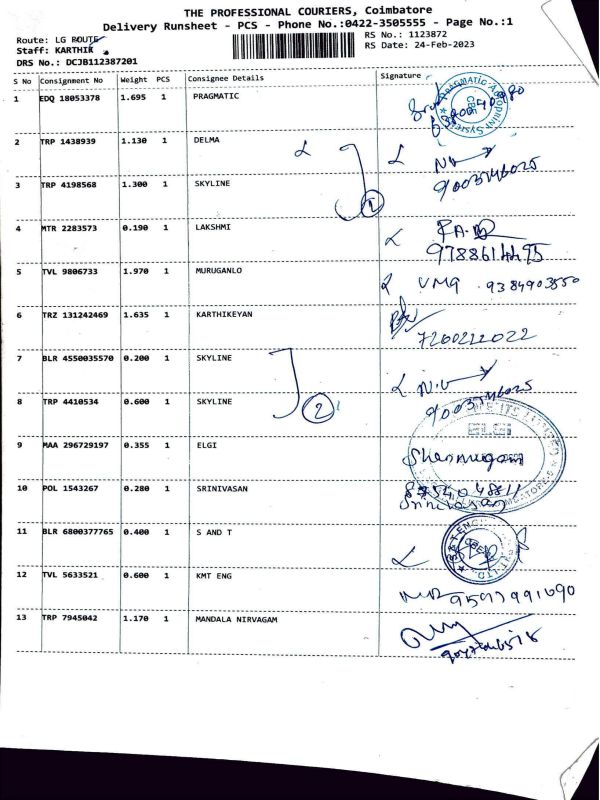 THE PROFESSIONAL COURIERS, Coimbatore
Delivery Runsheet - PCS - Phone No.:0422-3505555 - Page No.:1
Route: LG ROUTE
Staff: KARTHIK
DRS No.: DCJB112387201
RS No.: 1123872
RS Date: 24-Feb-2023
S No Consignment No Weight PCS Consignee Details Signature
1 EDQ 18053378 1.695 1 PRAGMATIC
2 TRP 1438939 1.130 1 DELMA
3 TRP 4198568 1.300 1 SKYLINE
1
4 MTR 2283573 0.190 1 LAKSHMI
9788614495
5 TVL 9806733 1.970 1 MURUGANLO VMG 9384903550
6 TRZ 131242469 1.635 1 KARTHIKEYAN
7200211022
7 BLR 4550035570 0.200 1 SKYLINE N.V
8 TRP 4410534 0.600 1 SKYLINE
2
9 MAA 296729197 0.355 1 ELGI
ELGI
Shanmugam
10 POL 1543267 0.280 1 SRINIVASAN
Srinivasan
11 BLR 6800377765 0.400 1 S AND T
12 TVL 5633521 0.600 1 KMT ENG
9597991090
13 TRP 7945042 1.170 1 MANDALA NIRVAGAM